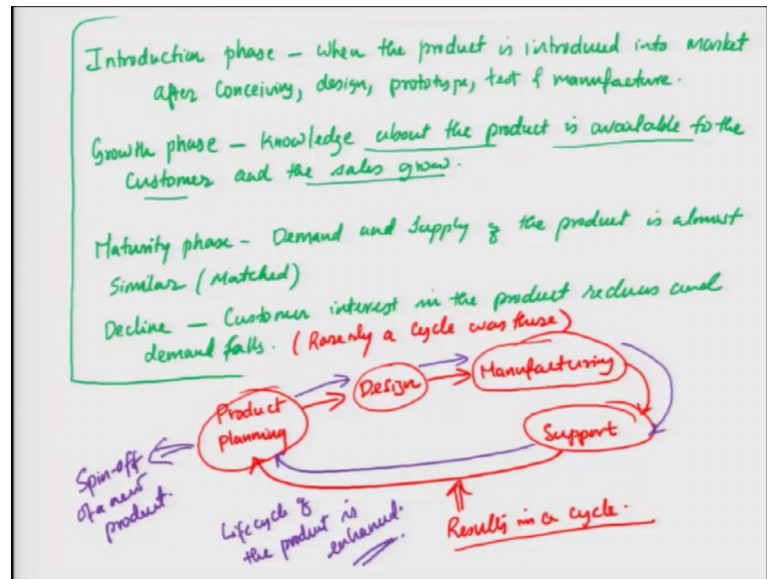 Introduction phase – When the product is introduced into market
after conceiving, design, prototype, test & manufacture.
Growth phase – Knowledge about the product is available to the
customer and the sales grow.
Maturity phase – Demand and supply of the product is almost
similar (Matched)
Decline – Customer interest in the product reduces and
demand falls. (Rarely a cycle was there)
Product
planning
Design
Manufacturing
Support
Spin-off
of a new
product.
Lifecycle of
the product is
enhanced.
Results in a cycle.